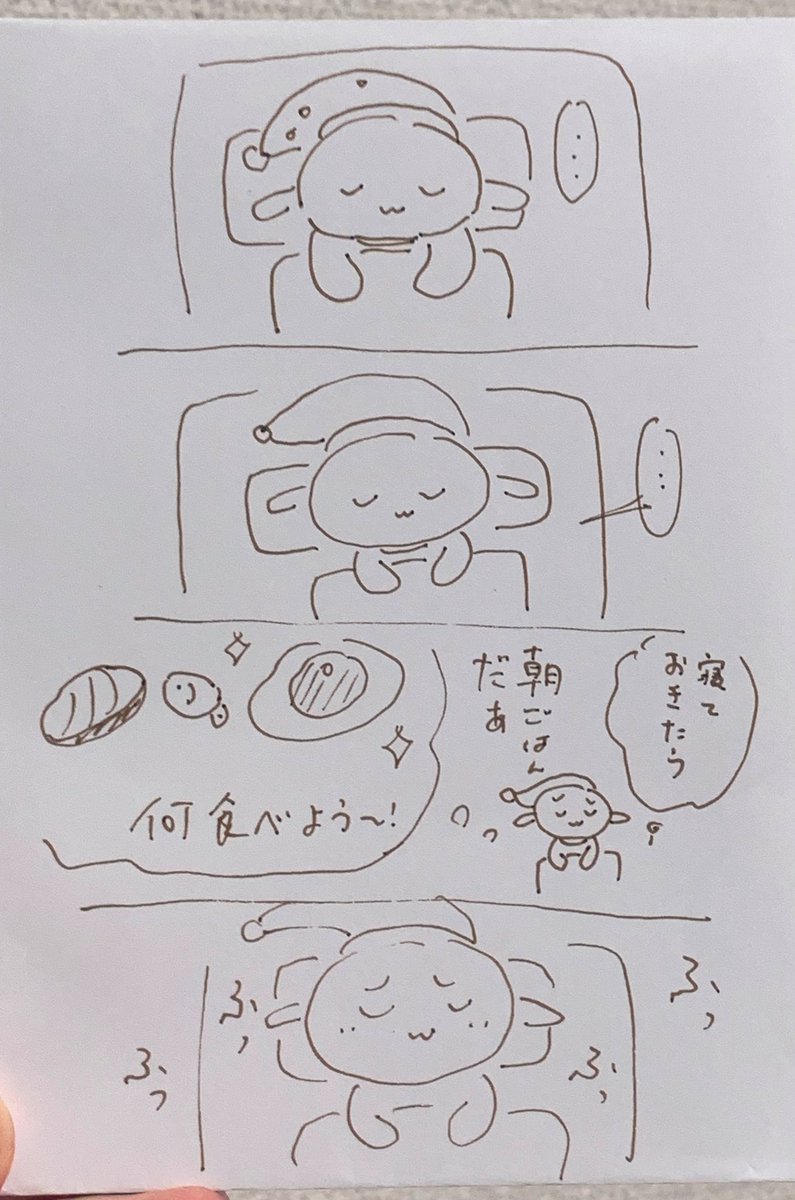 ...
...
寝て
おきたら
朝ごはん
だぁ
何食べよう〜!
ふっ
ふっ
ふっ
ふっ